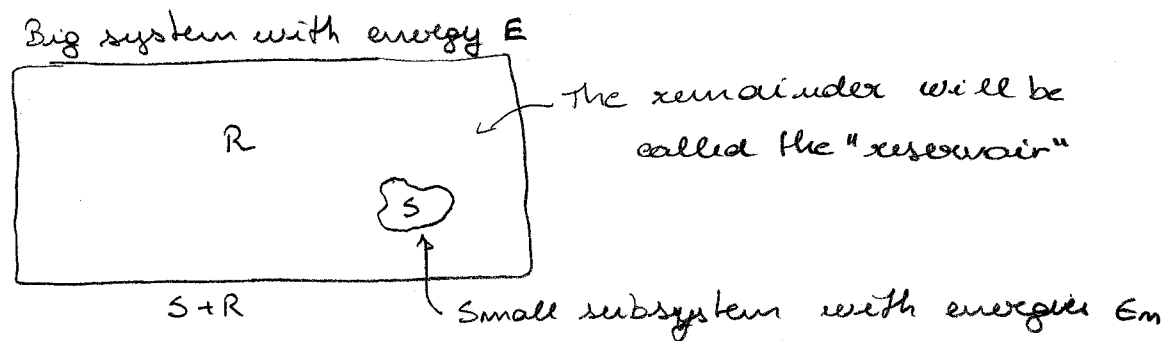 Big system with energy E
The remainder will be
called the "reservoir"
R
S
S+R
Small subsystem with energies Em